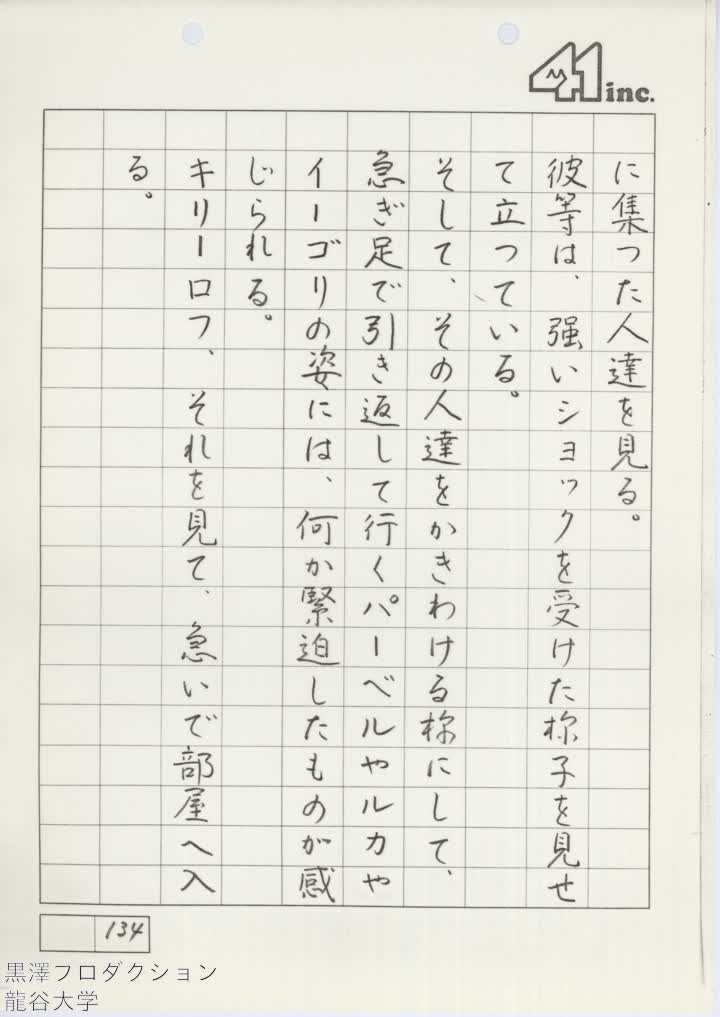 41 inc.
に集つた人達を見る。
彼等は、強いショックを受けた様子を見せ
て立つている。
そして、その人達をかきわける様にして、
急ぎ足で引き返して行くパーベルやルカや
イーゴリの姿には、何か緊迫したものが感
じられる。
キリーロフ、それを見て、急いで部屋へ入
る。
134
黒澤プロダクション
龍谷大学